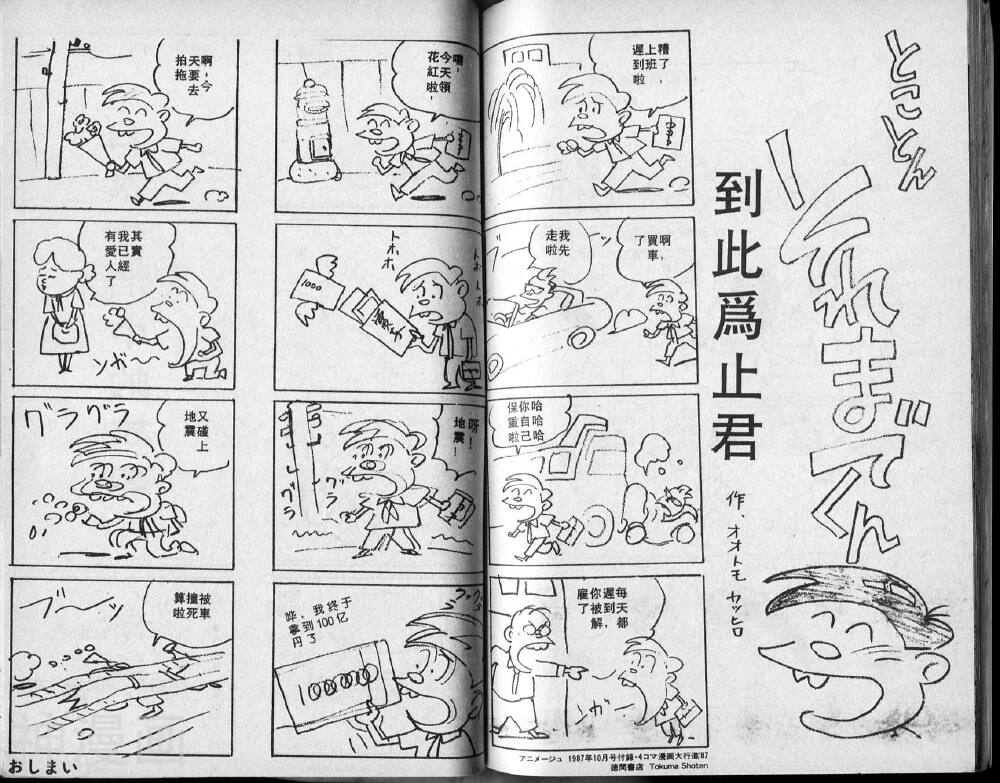 とことん
それまでくん
到此爲止君
作、オオトモ カツヒロ
糟了，
上班
遲到啦
啊，
買車
了
我先
走啦
哈哈哈
你自己
保重啦
每天都
遲到，
你被解
雇了
ンガー
嘻，
今天領
花紅啦
トホホ
トホホ
1000
呀！
地震！
グラ
グラ
哗，我终于
拿到100亿
円了
啊，今
天要去
拍拖
其實
我已經
有愛人
了
ンガ〜
又碰上
地震
グラグラ
被車
撞死
算啦
ブーッ
おしまい
アニメージュ 1987年10月号付録・4コマ漫画大行進'87
徳間書店 Tokuma Shoten